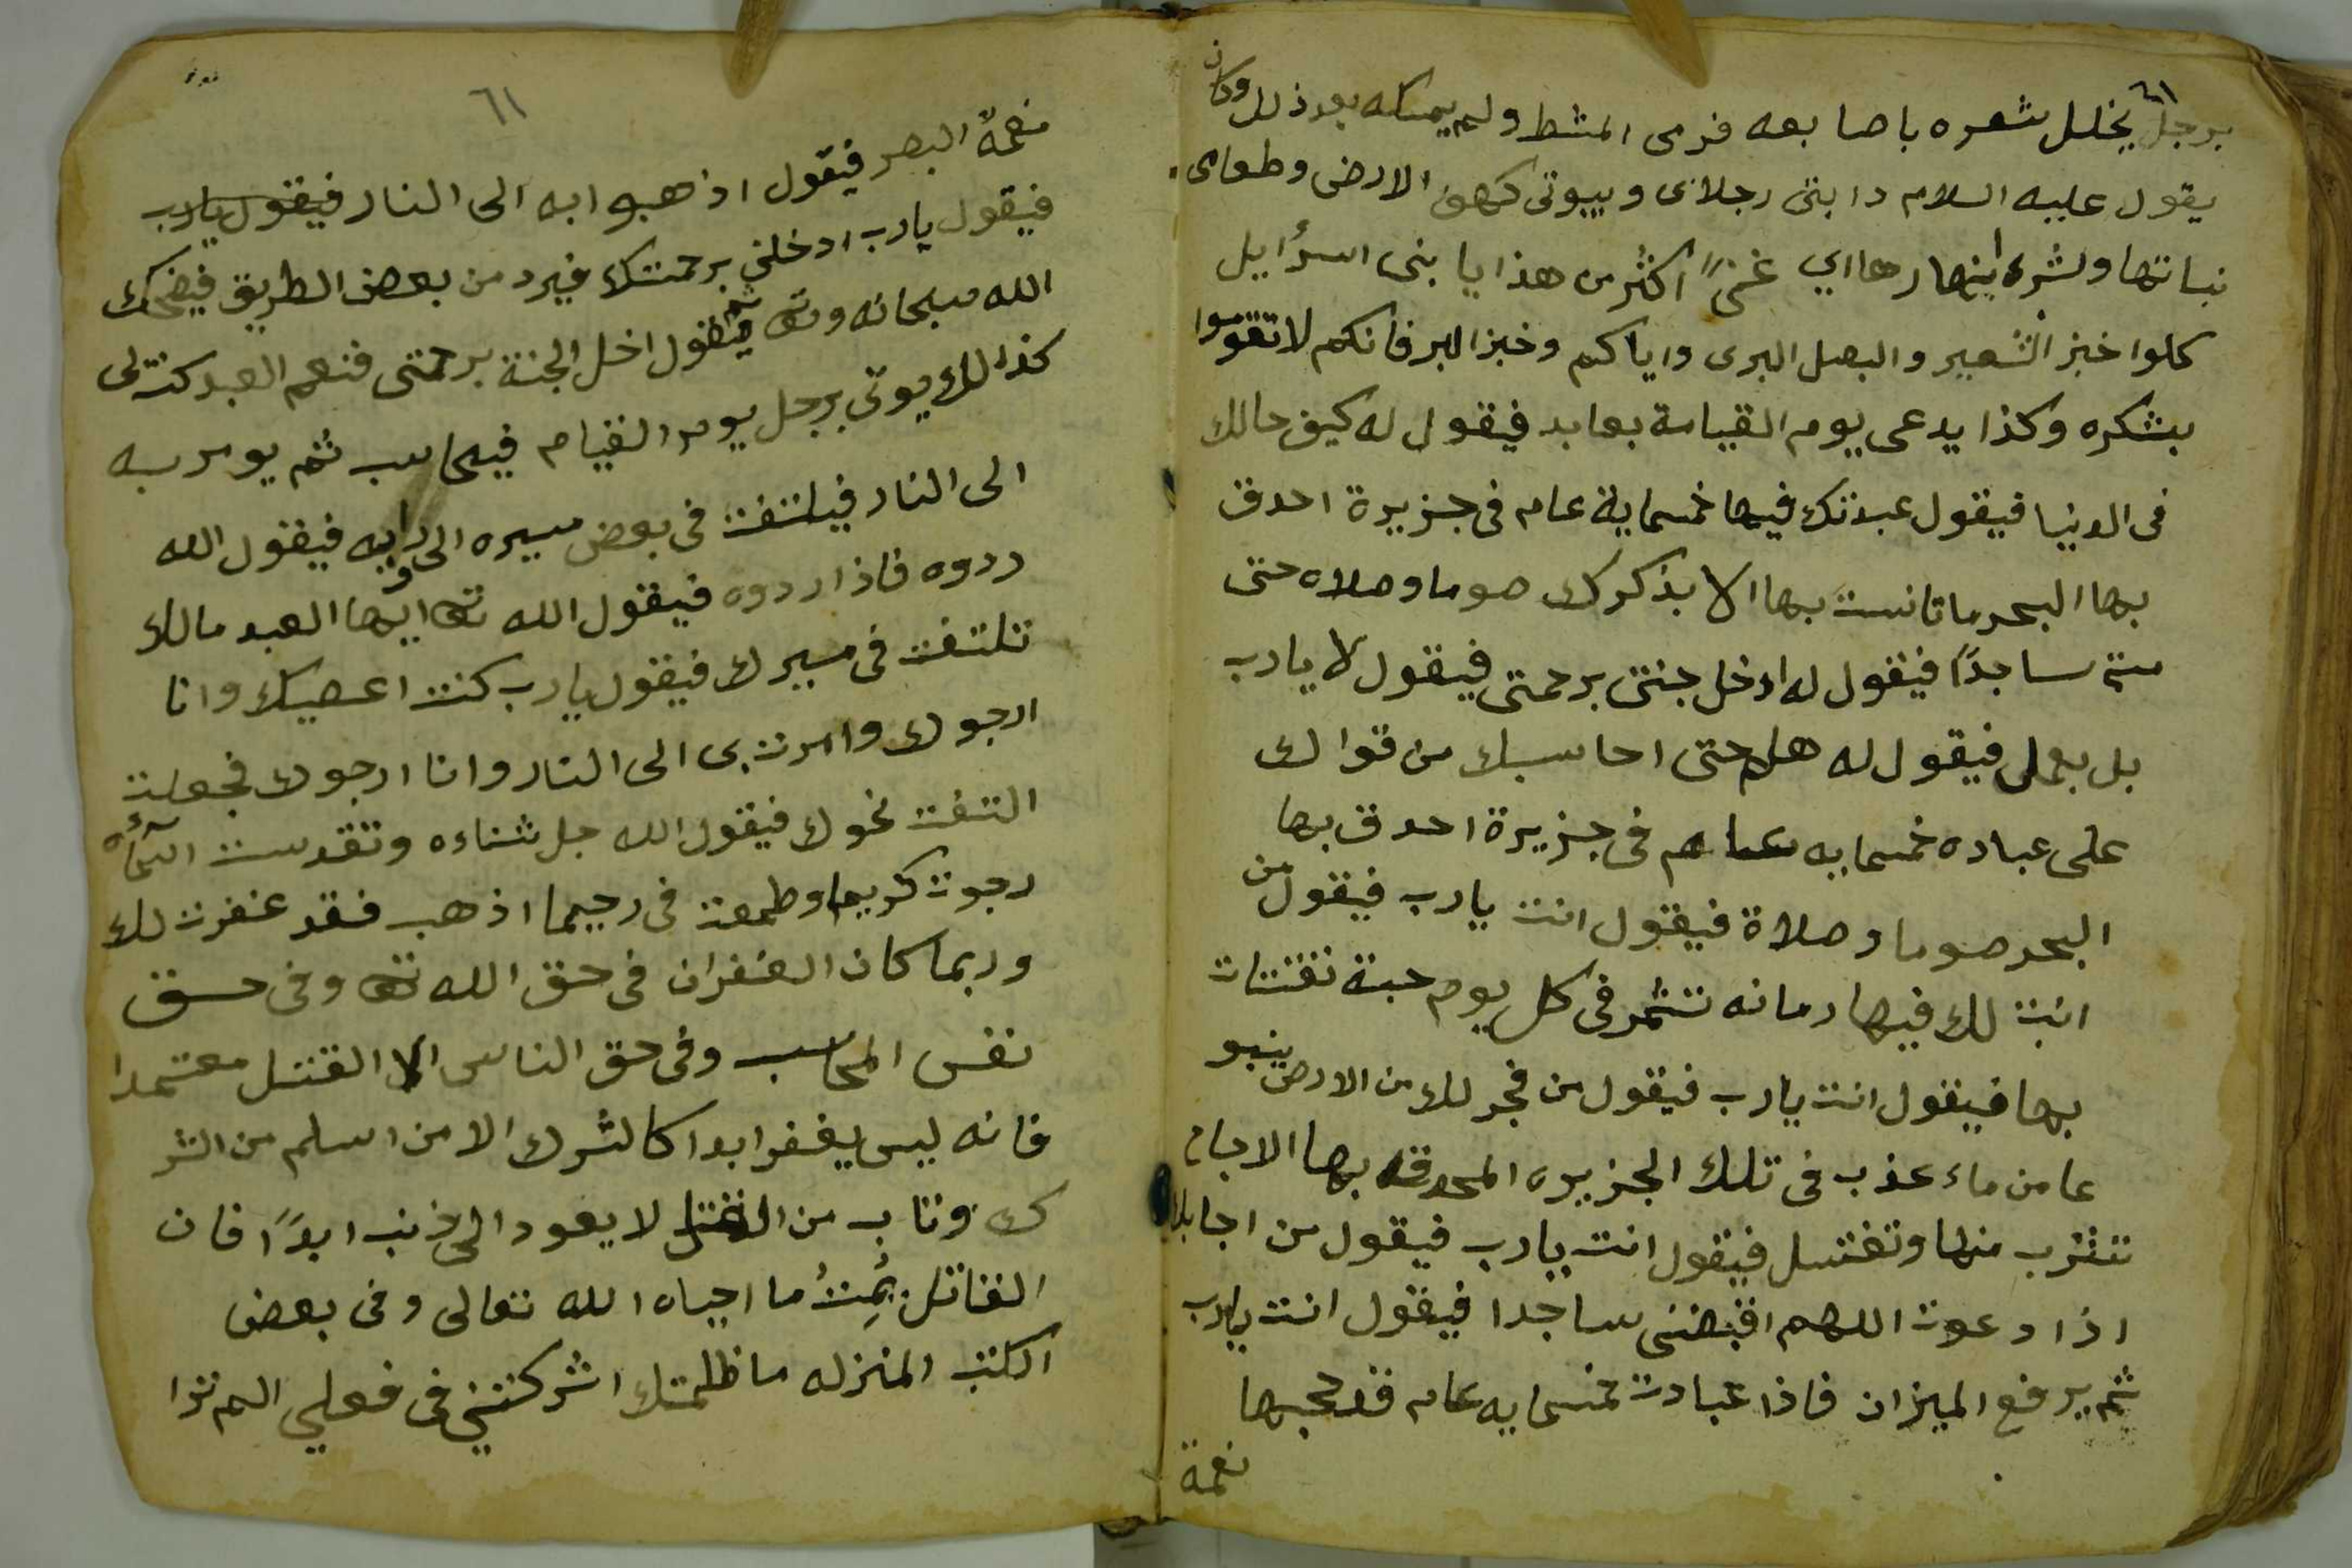 برجل يخلل شعره باصابعه فرمى المشط ولم يمسكه بعد ذلك وكان
يقول عليه السلام دابتى رجلاى وبيوتى كهف الارض وطعامى
نباتها وشربى انهارها اي غنًى اكثر من هذا يا بنى اسرايل
كلوا خبز الشعير والبصل البرى واياكم وخبز البر فانكم لا تقوموا
بشكره وكذا يدعى يوم القيامة بعابد فيقول له كيف حالك
فى الدنيا فيقول عبدتك فيها خمسماية عام فى جزيرة احدق
بها البحر ما تانست بها الا بذكرك صوما وصلاه حتى
مت ساجدًا فيقول له ادخل جنتى برحمتى فيقول لا يارب
بل بعملى فيقول له هلم حتى احاسبك من قواك
على عباده خمسمايه عام فى جزيرة احدق بها
البحر صوما وصلاة فيقول انت يارب فيقول من
انبت لك فيها رمانه تثمر فى كل يوم حبة تقتات
بها فيقول انت يارب فيقول من فجر لك من الارض ينبو
عا من ماء عذب فى تلك الجزيره المحدقه بها الاجاج
تشرب منها وتغتسل فيقول انت يارب فيقول من اجابك
اذا دعوت اللهم اقبضنى ساجدا فيقول انت يارب
ثم يرفع الميزان فاذا عبادت خمسمايه عام قد حجبها
نعمة
٦١
نعمة البصر فيقول اذهبوا به الى النار فيقول يارب
فيقول يارب ادخلنى برحمتك فيرد من بعض الطريق فيضحك
الله سبحانه وتع ثم يقول ادخل الجنة برحمتى فنعم العبد كنت لى
كذالك يوتى برجل يوم القيام فيحاسب ثم يومر به
الى النار فيلتفت فى بعض مسيره الى ورايه فيقول الله
ردوه فاذا ردوه فيقول الله تع ايها العبد مالك
تلتفت فى مسيرك فيقول يارب كنت اعصيك وانا
ارجوك وامرت بى الى النار وانا ارجوك فجعلت
التفت نحوك فيقول الله جل ثناءه وتقدست اسمآؤه
رجوت كريما وطمعت فى رحيما اذهب فقد غفرت لك
وربما كان الغفران فى حق الله تع وفى حق
نفس المحاسب وفى حق الناس الا القتل معتمدا
فانه ليس يغفر ابدا كالشرك الا من اسلم من الشر
ك وتاب من القتل لا يعود الى ذنب ابدًا فان
القاتل يُمِتُ ما احياه الله تعالى وفى بعض
الكتب المنزله ما ظلمتك اشركتنى فى فعلي الم ترا